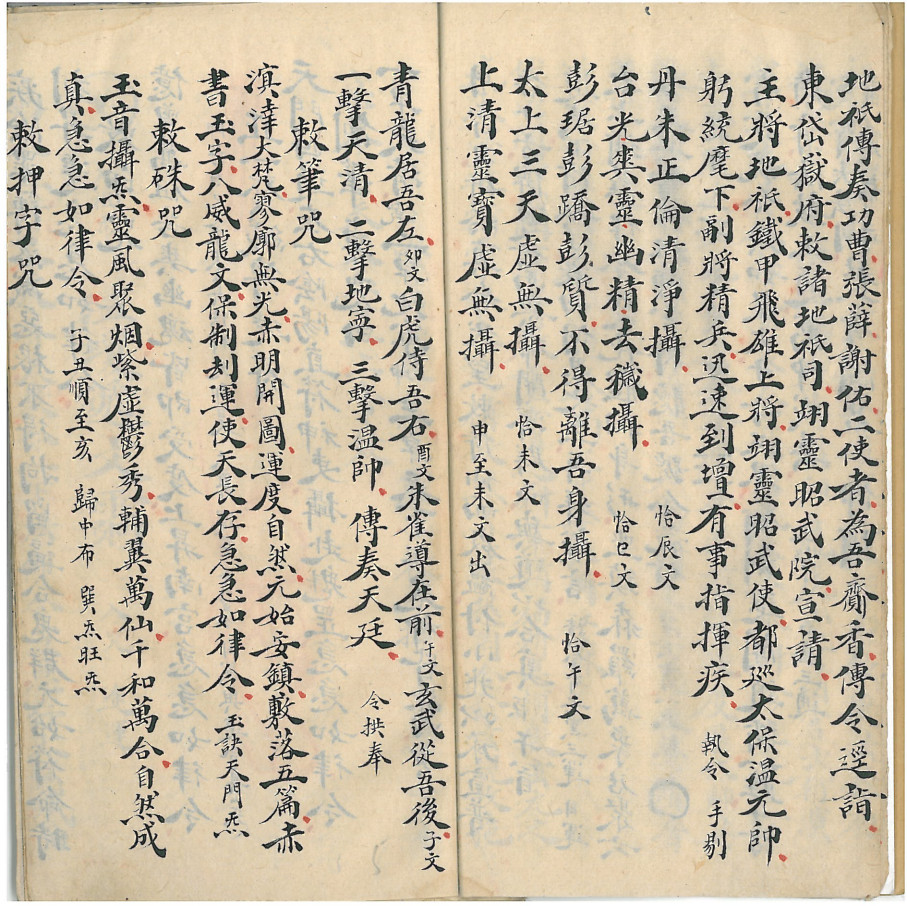 地祇傳奏功曹張薛謝佑二使者為吾賫香傳令逕詣
東岱嶽府敕諸地祇司翊靈昭武院宣請
主將地祇鐵甲飛雄上將翊靈昭武使都巡太保温元帥
躬統麾下副將精兵迅速到壇有事指揮疾 執令 手剔
丹朱正倫清淨攝 恰辰文
台光爽靈幽精去穢攝 恰巳文
彭琚彭蹻彭質不得離吾身攝 恰午文
太上三天虛無攝 恰未文
上清靈寶虛無攝 申至未文出
青龍居吾左卯文白虎侍吾右酉文朱雀導在前午文玄武從吾後子文
一擊天清二擊地寧三擊温帥傳奏天廷 令拱奉
敕筆咒
溟涬大梵寥廓無光赤明開圖運度自然元始安鎮敷落五篇赤
書玉字八威龍文保制刦運使天長存急急如律令 玉訣天門炁
敕硃咒
玉音攝炁靈風聚烟紫虛欎秀輔翼萬仙千和萬合自然成
真急急如律令 子丑順至亥 歸中布 巽炁旺炁
敕押字咒